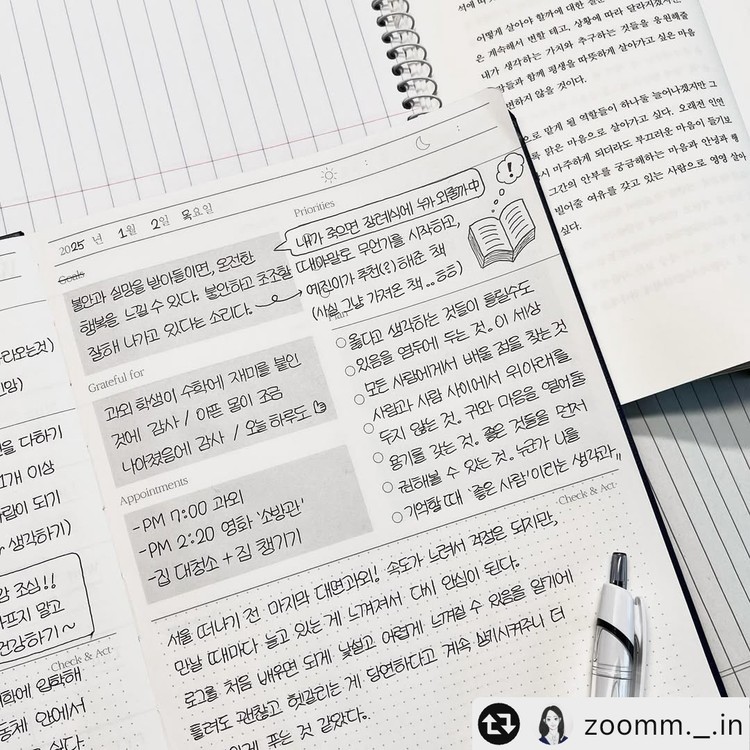 어떻게 살아야 할까에 대한 질문
은 계속해서 변할 테고, 상황에 따라 달라지겠지만,
내가 생각하는 가치와 추구하는 것들을 응원해줄
사람들과 함께 평생을 따뜻하게 살아가고 싶은 마음
변하지 않을 것이다.
으로 맡게 될 역할들이 하나둘 늘어나겠지만 그
록 맑은 마음으로 살아가고 싶다. 오래전 인연
시 마주하게 되더라도 부끄러운 마음이 들기보
그간의 안부를 궁금해하는 마음과 안녕과 행
빌어줄 여유를 갖고 있는 사람으로 영영 살아
싶다.
2025 년 1월 2일 목요일
Goals
불안과 실망을 받아들이면, 온전한
행복을 느낄 수 있다. 불안하고 초조함
잘해 나가고 있다는 소리다.
Grateful for
과외 학생이 수학에 재미를 붙인
것에 감사 / 아픈 몸이 조금
나아졌음에 감사 / 오늘 하루도
Appointments
-PM 7:00 과외
-PM 2:20 영화 '소방관'
-집 대청소 + 짐 챙기기
Priorities
내가 죽으면 장례식에 누가 와줄까 中
때야말로 무언가를 시작하고,
예진이가 추천(?)해준 책
(사실 그냥 가져온 책..ㅎㅎ)
Plan
옳다고 생각하는 것들이 틀릴수도
있음을 염두에 두는 것. 이 세상
모든 사람에게서 배울 점을 찾는 것
사람과 사람 사이에서 위아래를
두지 않는 것. 귀와 마음을 열어둘
용기를 갖는 것. 좋은 것들을 먼저
권해볼 수 있는 것. 누군가 나를
기억할 때 '좋은 사람'이라는 생각과,,
Check & Act
서울 떠나기 전 마지막 대면과외! 속도가 느려서 걱정은 되지만,
만날 때마다 늘고 있는 게 느껴져서 다시 안심이 된다.
로그를 처음 배우면 되게 낯설고 어렵게 느껴질 수 있음을 알기에
틀려도 괜찮고 헷갈리는 게 당연하다고 계속 상기시켜주니 더
푸는 것 같았다.
라오는것)
을 다하기
1개 이상
람이 되기
생각하기)
조심!!
프지 말고
건강하기~
Check & Act
학에 입학해
동체 안에서
싶다.
zoomm._.in